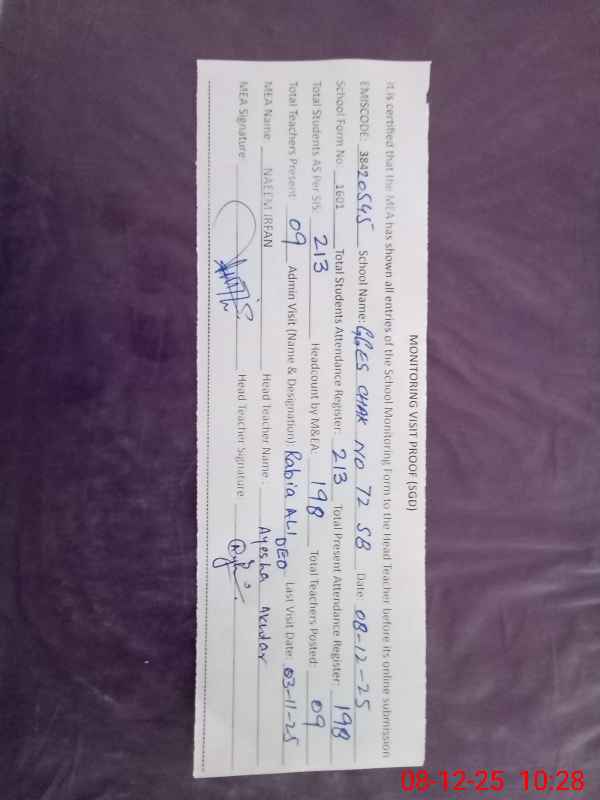 MONITORING VISIT PROOF (SGD)
It is certified that the MEA has shown all entries of the School Monitoring Form to the Head Teacher before its online submission
EMISCODE: 38420545 School Name: GGES CHAK NO 72 SB Date 08-12-25
School Form No. 1601 Total Students Attendance Register: 213 Total Present Attendance Register: 198
Total Students AS Per SIS: 213 Headcount by M&EA: 198 Total Teachers Posted: 09
Total Teachers Present 09 Admin Visit (Name & Designation) Rabia ALI DEO Last Visit Date: 03-11-25
MEA Name NAEEM IRFAN Head Teacher Name : Ayesha
MEA Signature Head Teacher Signature
08-12-25 10:28